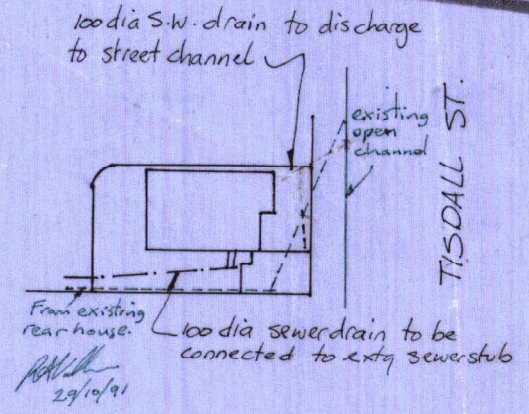 100 dia S.W. drain to discharge
to street channel
existing
open
channel
TISDALL ST.
From existing
rear house.
100 dia sewer drain to be
connected to extg sewer stub
29/10/91